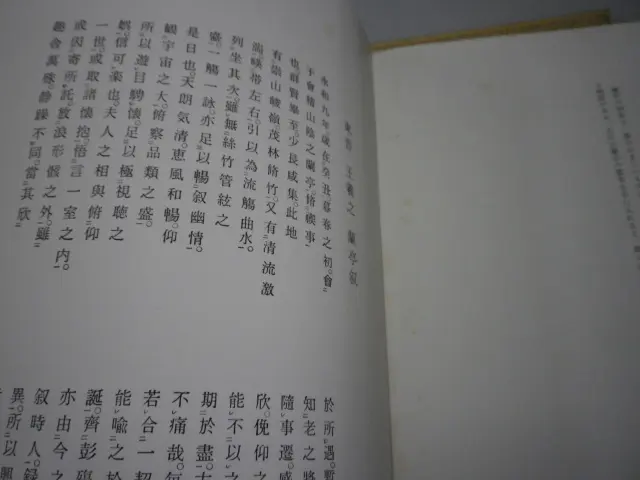 東晉 王羲之 蘭亭叙
永和九年歲在癸丑暮春之初。會
于會稽山陰之蘭亭。脩禊事
也。群賢畢至少長咸集。此地
有崇山峻嶺茂林脩竹。又有清流激
湍暎帶左右。引以為流觴曲水。
列坐其次。雖無絲竹管絃之
盛。一觴一詠亦足以暢叙幽情。
是日也。天朗氣清。惠風和暢。仰
觀宇宙之大。俯察品類之盛。
所以遊目騁懷。足以極視聽之
娛。信可樂也。夫人之相與俯仰
一世。或取諸懷抱。悟言一室之內。
或因寄所託。放浪形骸之外。雖
趣舍萬殊。靜躁不同。當其欣
於所遇。暫
知老之將
隨事遷。感
欣。俛仰之
能不以之
期於盡。古
不痛哉。每
若合一契
能喻之於
誕。齊彭殤
亦由今之
叙時人。錄
異。所以興